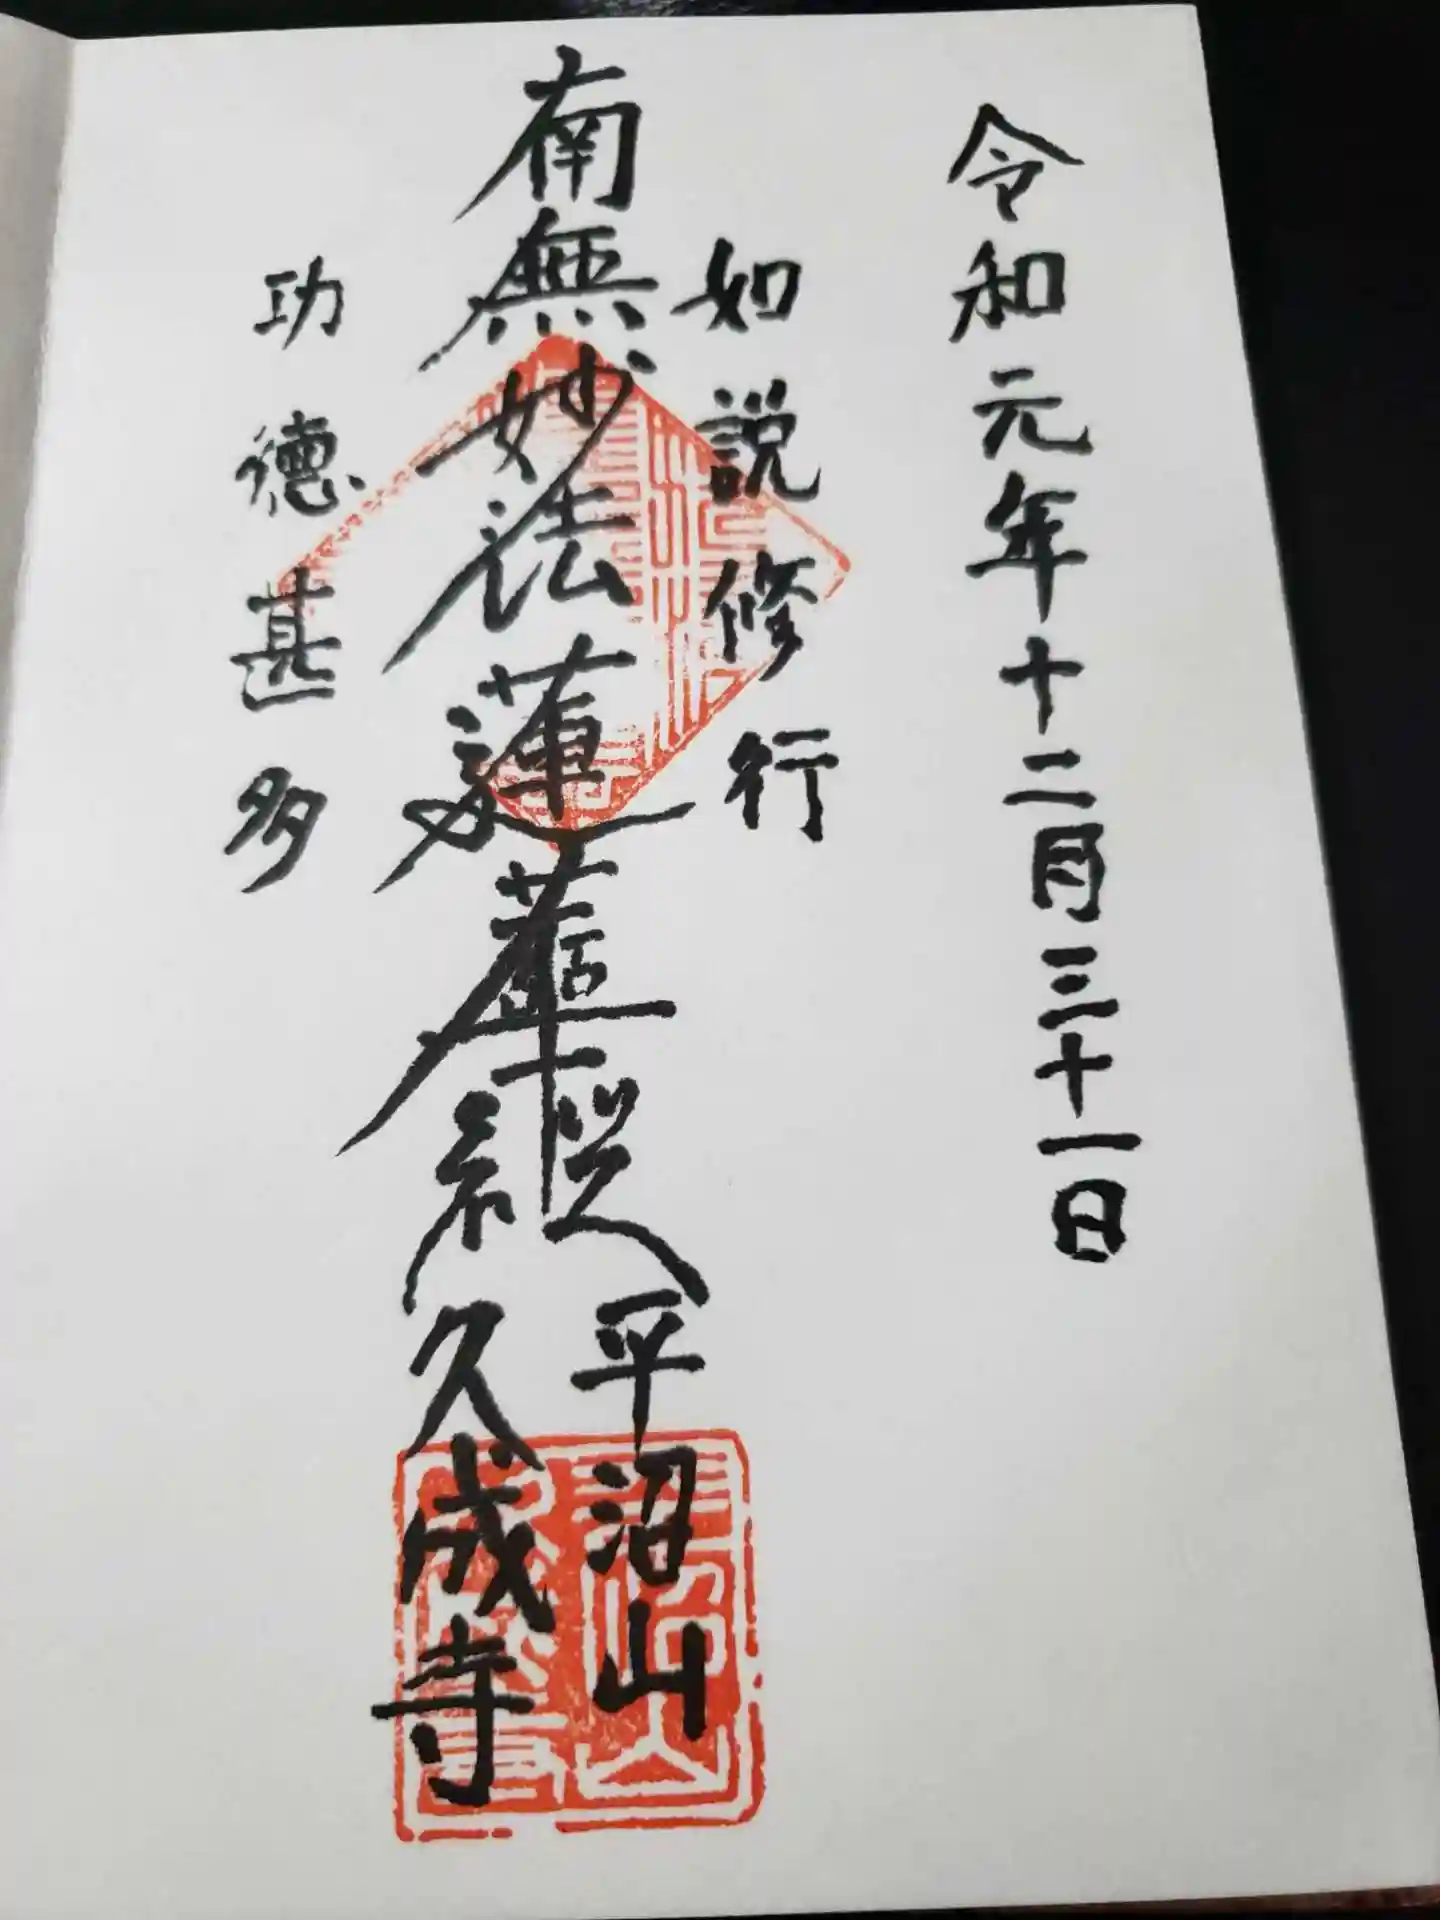 令和元年十二月三十一日
如説修行
南無妙法蓮華経
功徳甚多
平沼山
久成寺